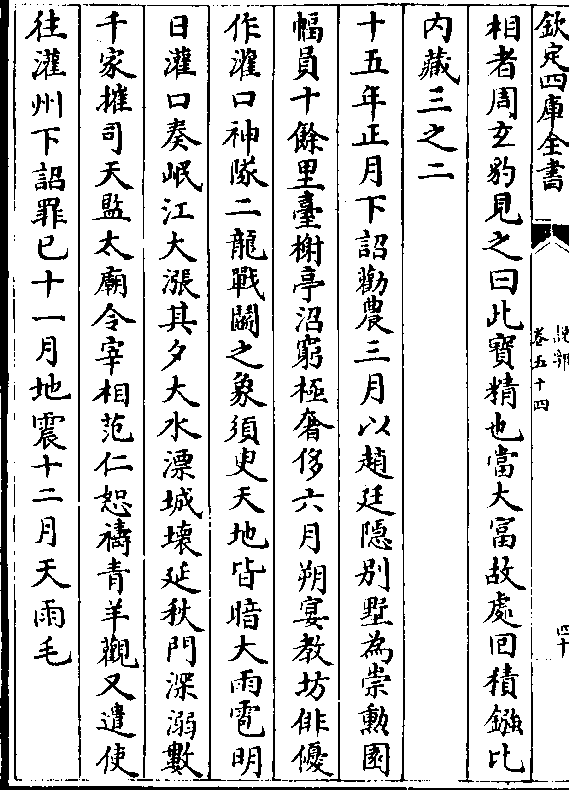 欽定四庫全書
說郛
卷五十四
四十
相者周玄豹見之曰此寶精也當大富故處回積鏹比
内藏三之二
十五年正月下詔勸農三月以趙廷隱别墅為崇勲園
幅員十餘里臺榭亭沼窮極奢侈六月朔宴教坊俳優
作灌口神隊二龍戰鬭之象須臾天地皆暗大雨雹明
日灌口奏岷江大漲其夕大水漂城壊延秋門深溺數
千家摧司天監太廟令宰相范仁恕禱青羊觀又遣使
往灌州下詔罪已十一月地震十二月天雨毛